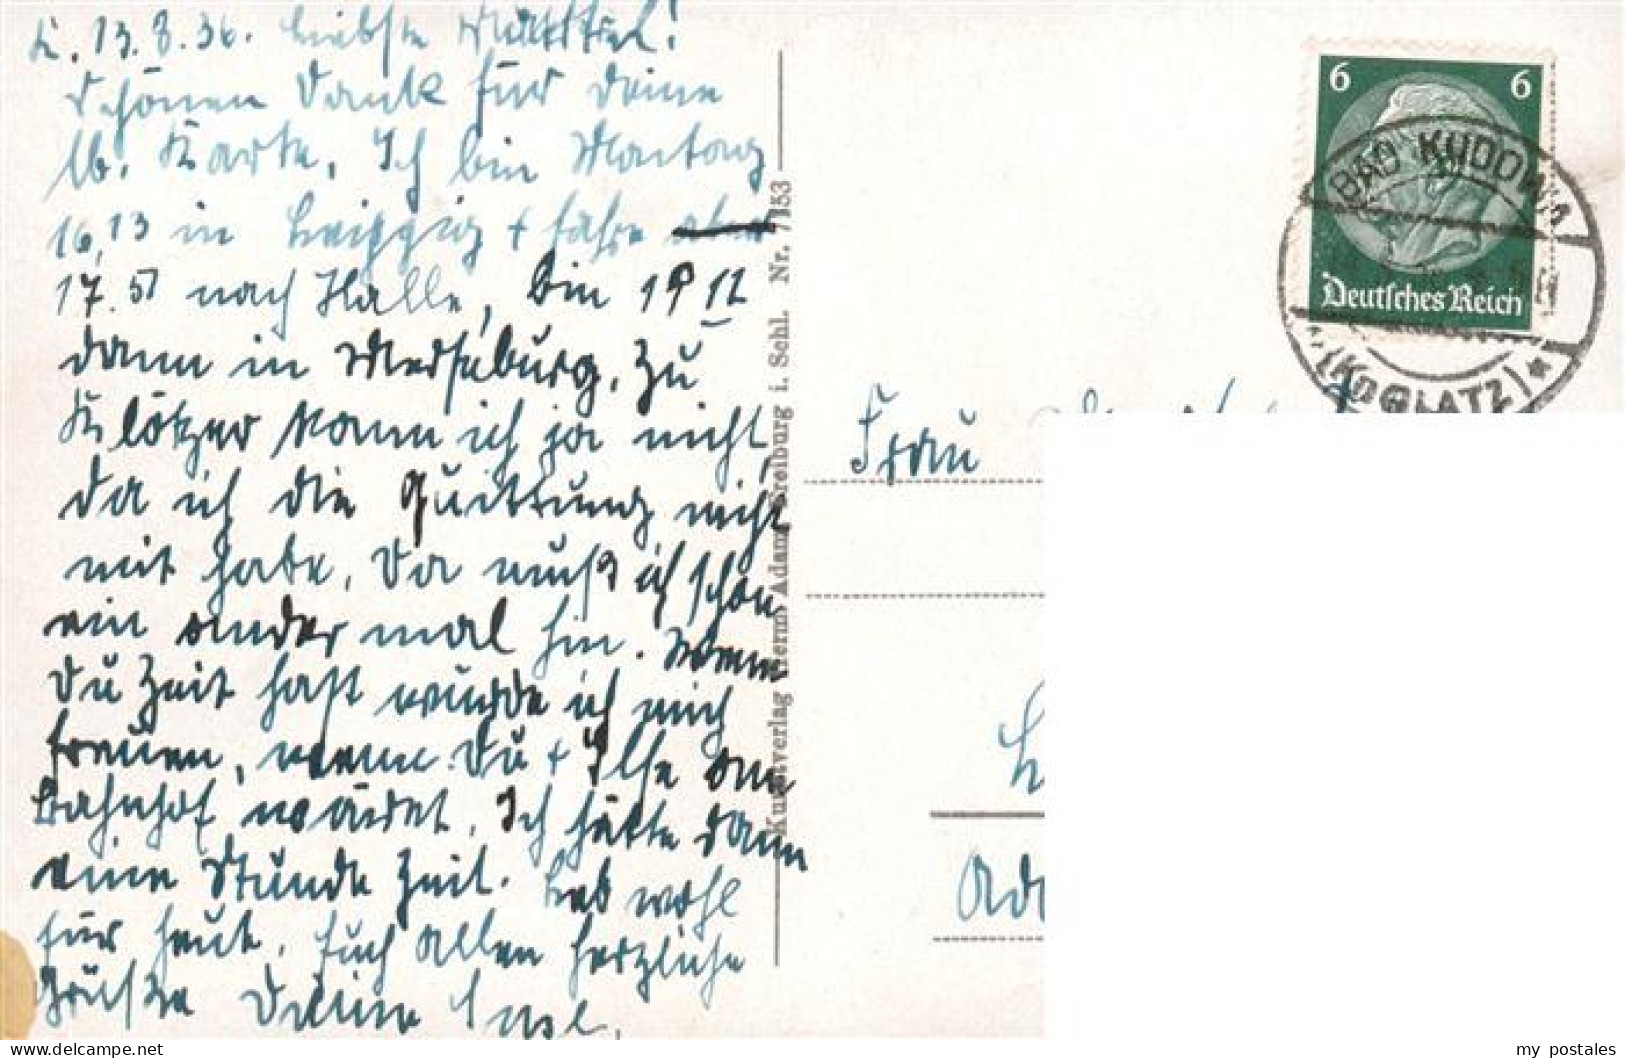 K. 13.8.36. Liebste
Schönen Dank für Deine
lb. Karte. Ich bin Montag
16,13 in Leipzig + fahre aber
17.51 nach Halle, bin 19 12
dann in Merseburg. Zu
Klötzer kann ich ja nicht,
da ich die Quittung nicht
mit habe. Da muß ich schon
ein ander mal hin. Wenn
Du Zeit hast würde ich mich
freuen, wenn Du + Ilse am
Bahnhof wäret. Ich hätte dann
eine Stunde Zeit. Leb wohl
für heut. Euch allen herzliche
Grüße Deine
Kunstverlag Herm. Adam, Freiburg i. Schl. Nr. 7153
6 6
Deutsches Reich
BAD KUDOWA
(GLATZ)
Frau
my postales